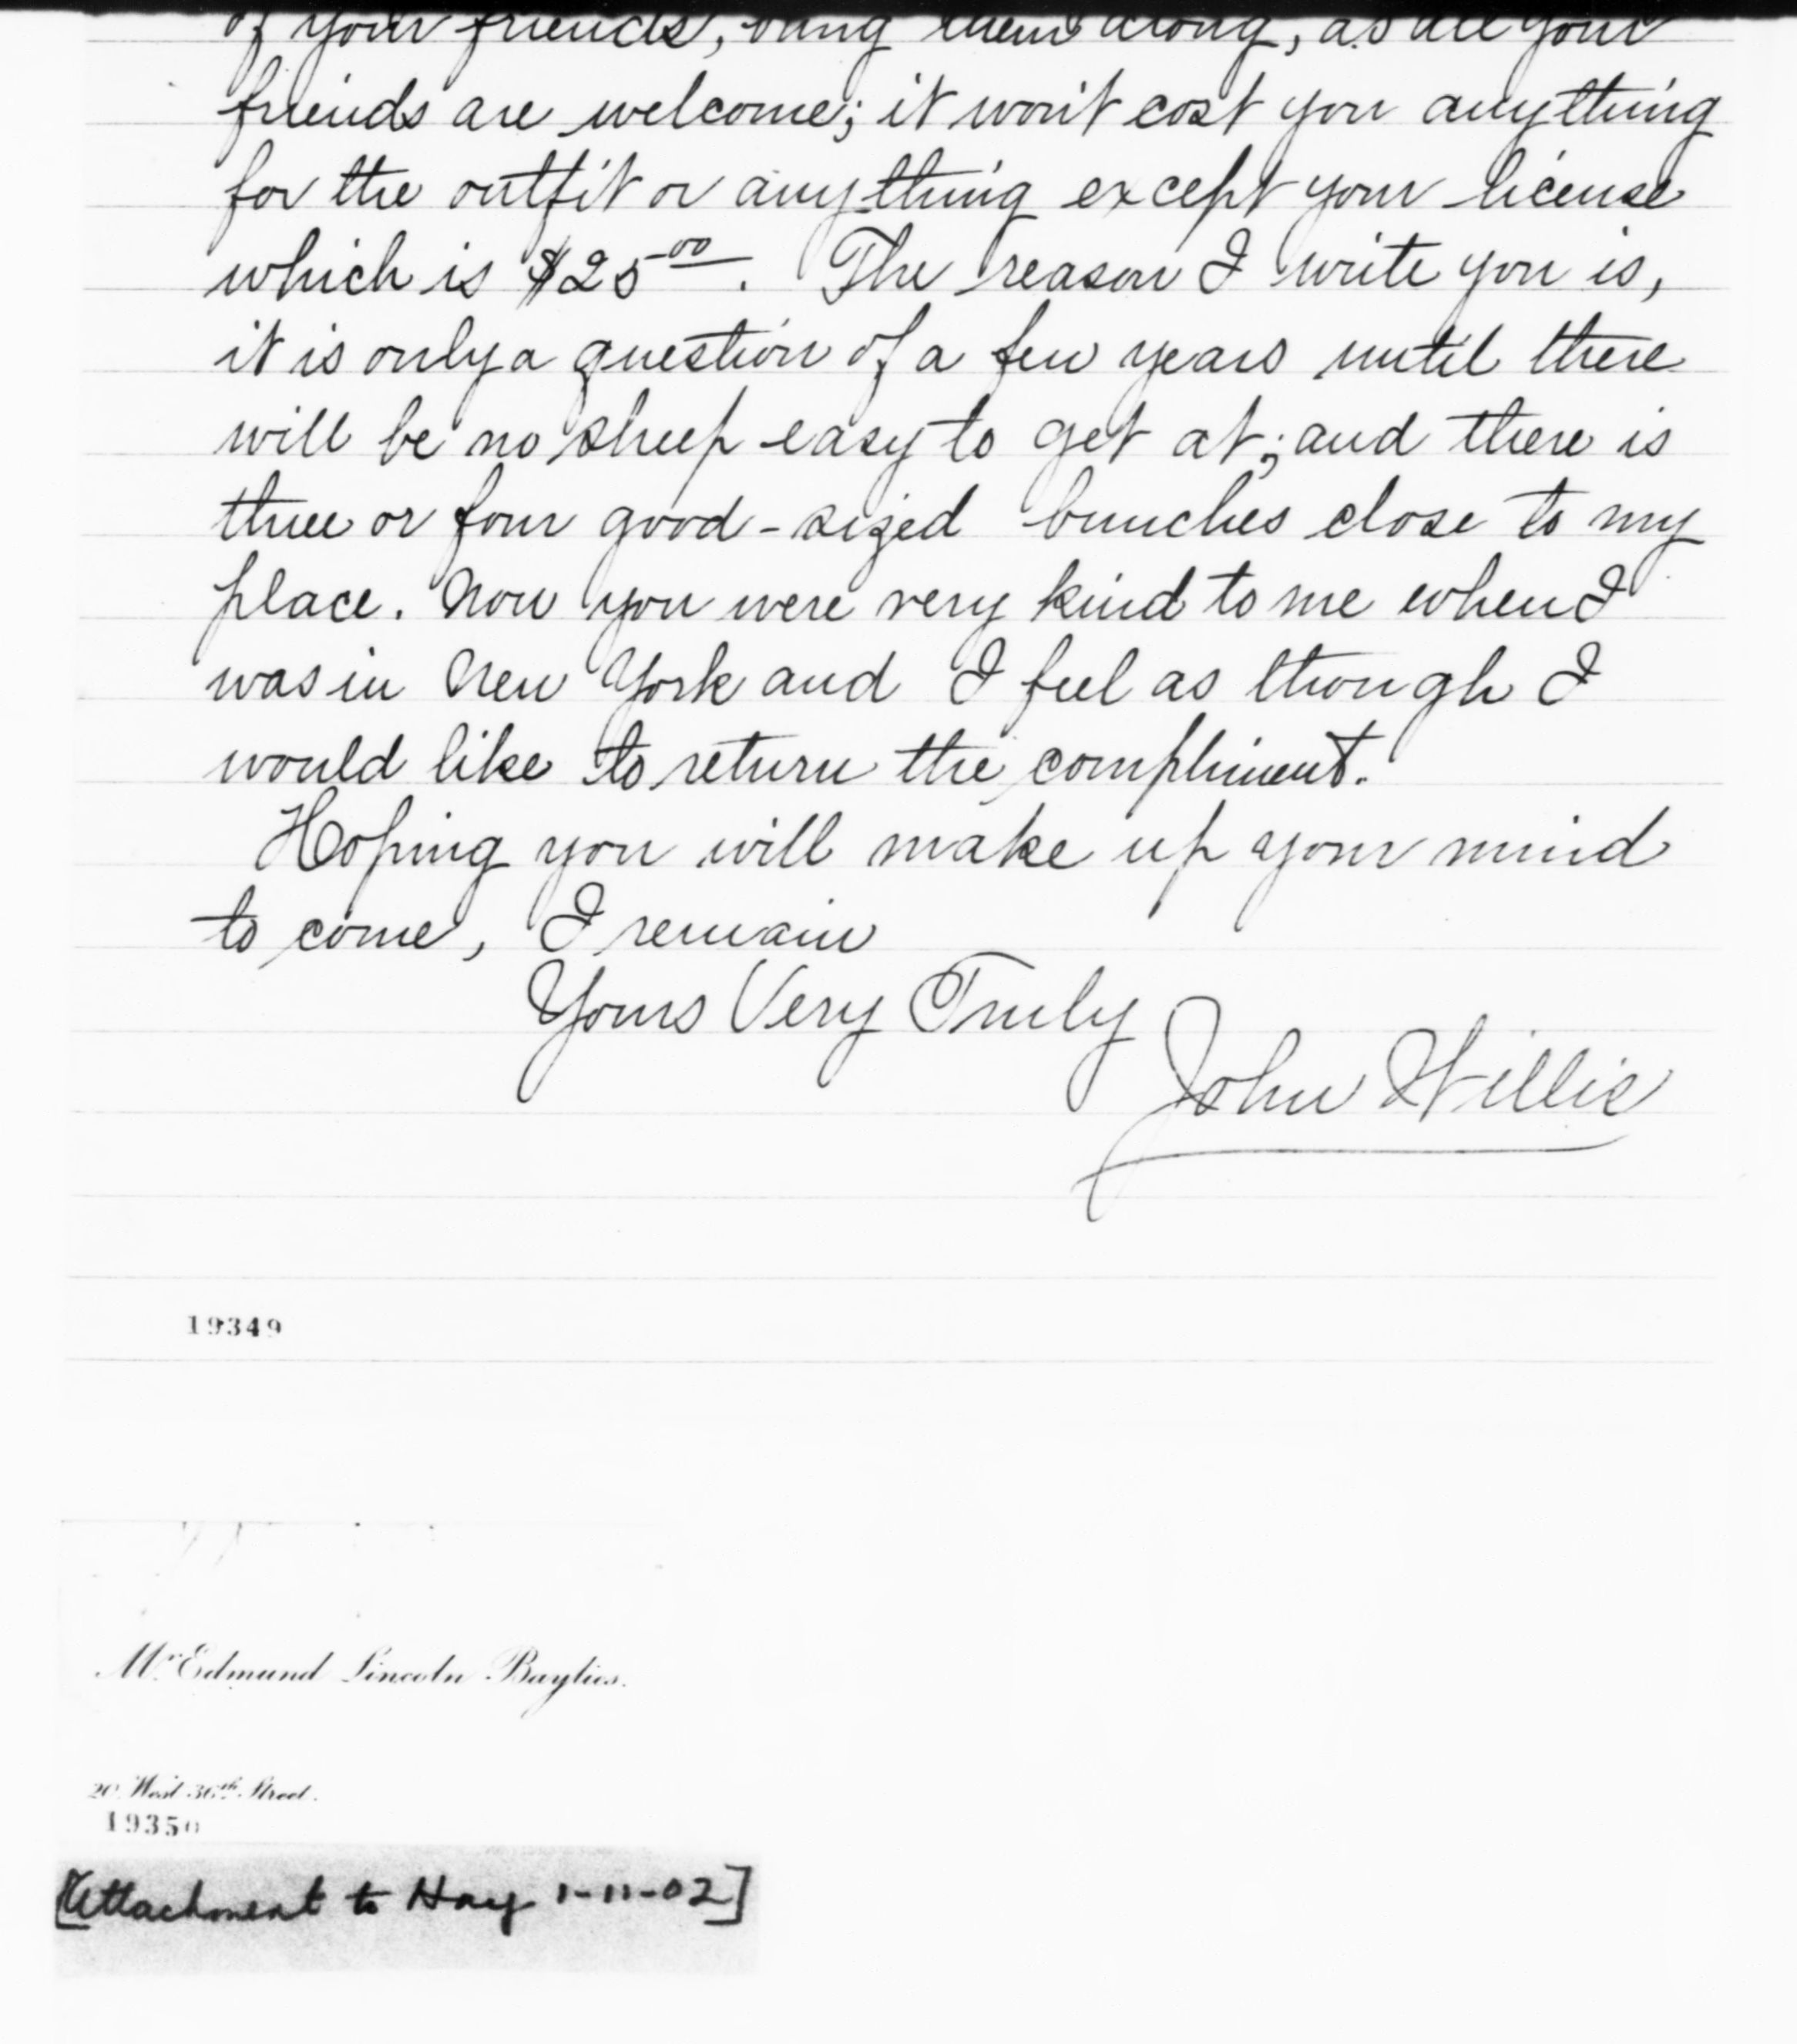 of your friends, bring them along, as all your
friends are welcome; it won't cost you anything
for the outfit or anything except your license
which is $25.00. The reason I write you is,
it is only a question of a few years until there
will be no sheep easy to get at; and there is
three or four good-sized bunches close to my
place. Now you were very kind to me when I
was in New York and I feel as though I
would like to return the compliment.
Hoping you will make up your mind
to come, I remain
Yours Very Truly
John Willis
19349
Mr. Edmund Lincoln Baylies.
20 West 36th Street.
19350
[Attachment to Hay 1-11-02]